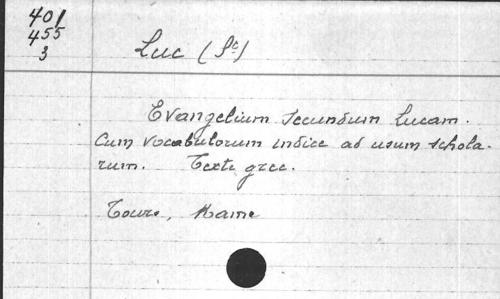 401
455
3
Luc (St)
Evangelium secundum Lucam.
Cum vocabulorum indice ad usum schola-
rum. Texte grec.
Tours, Mame